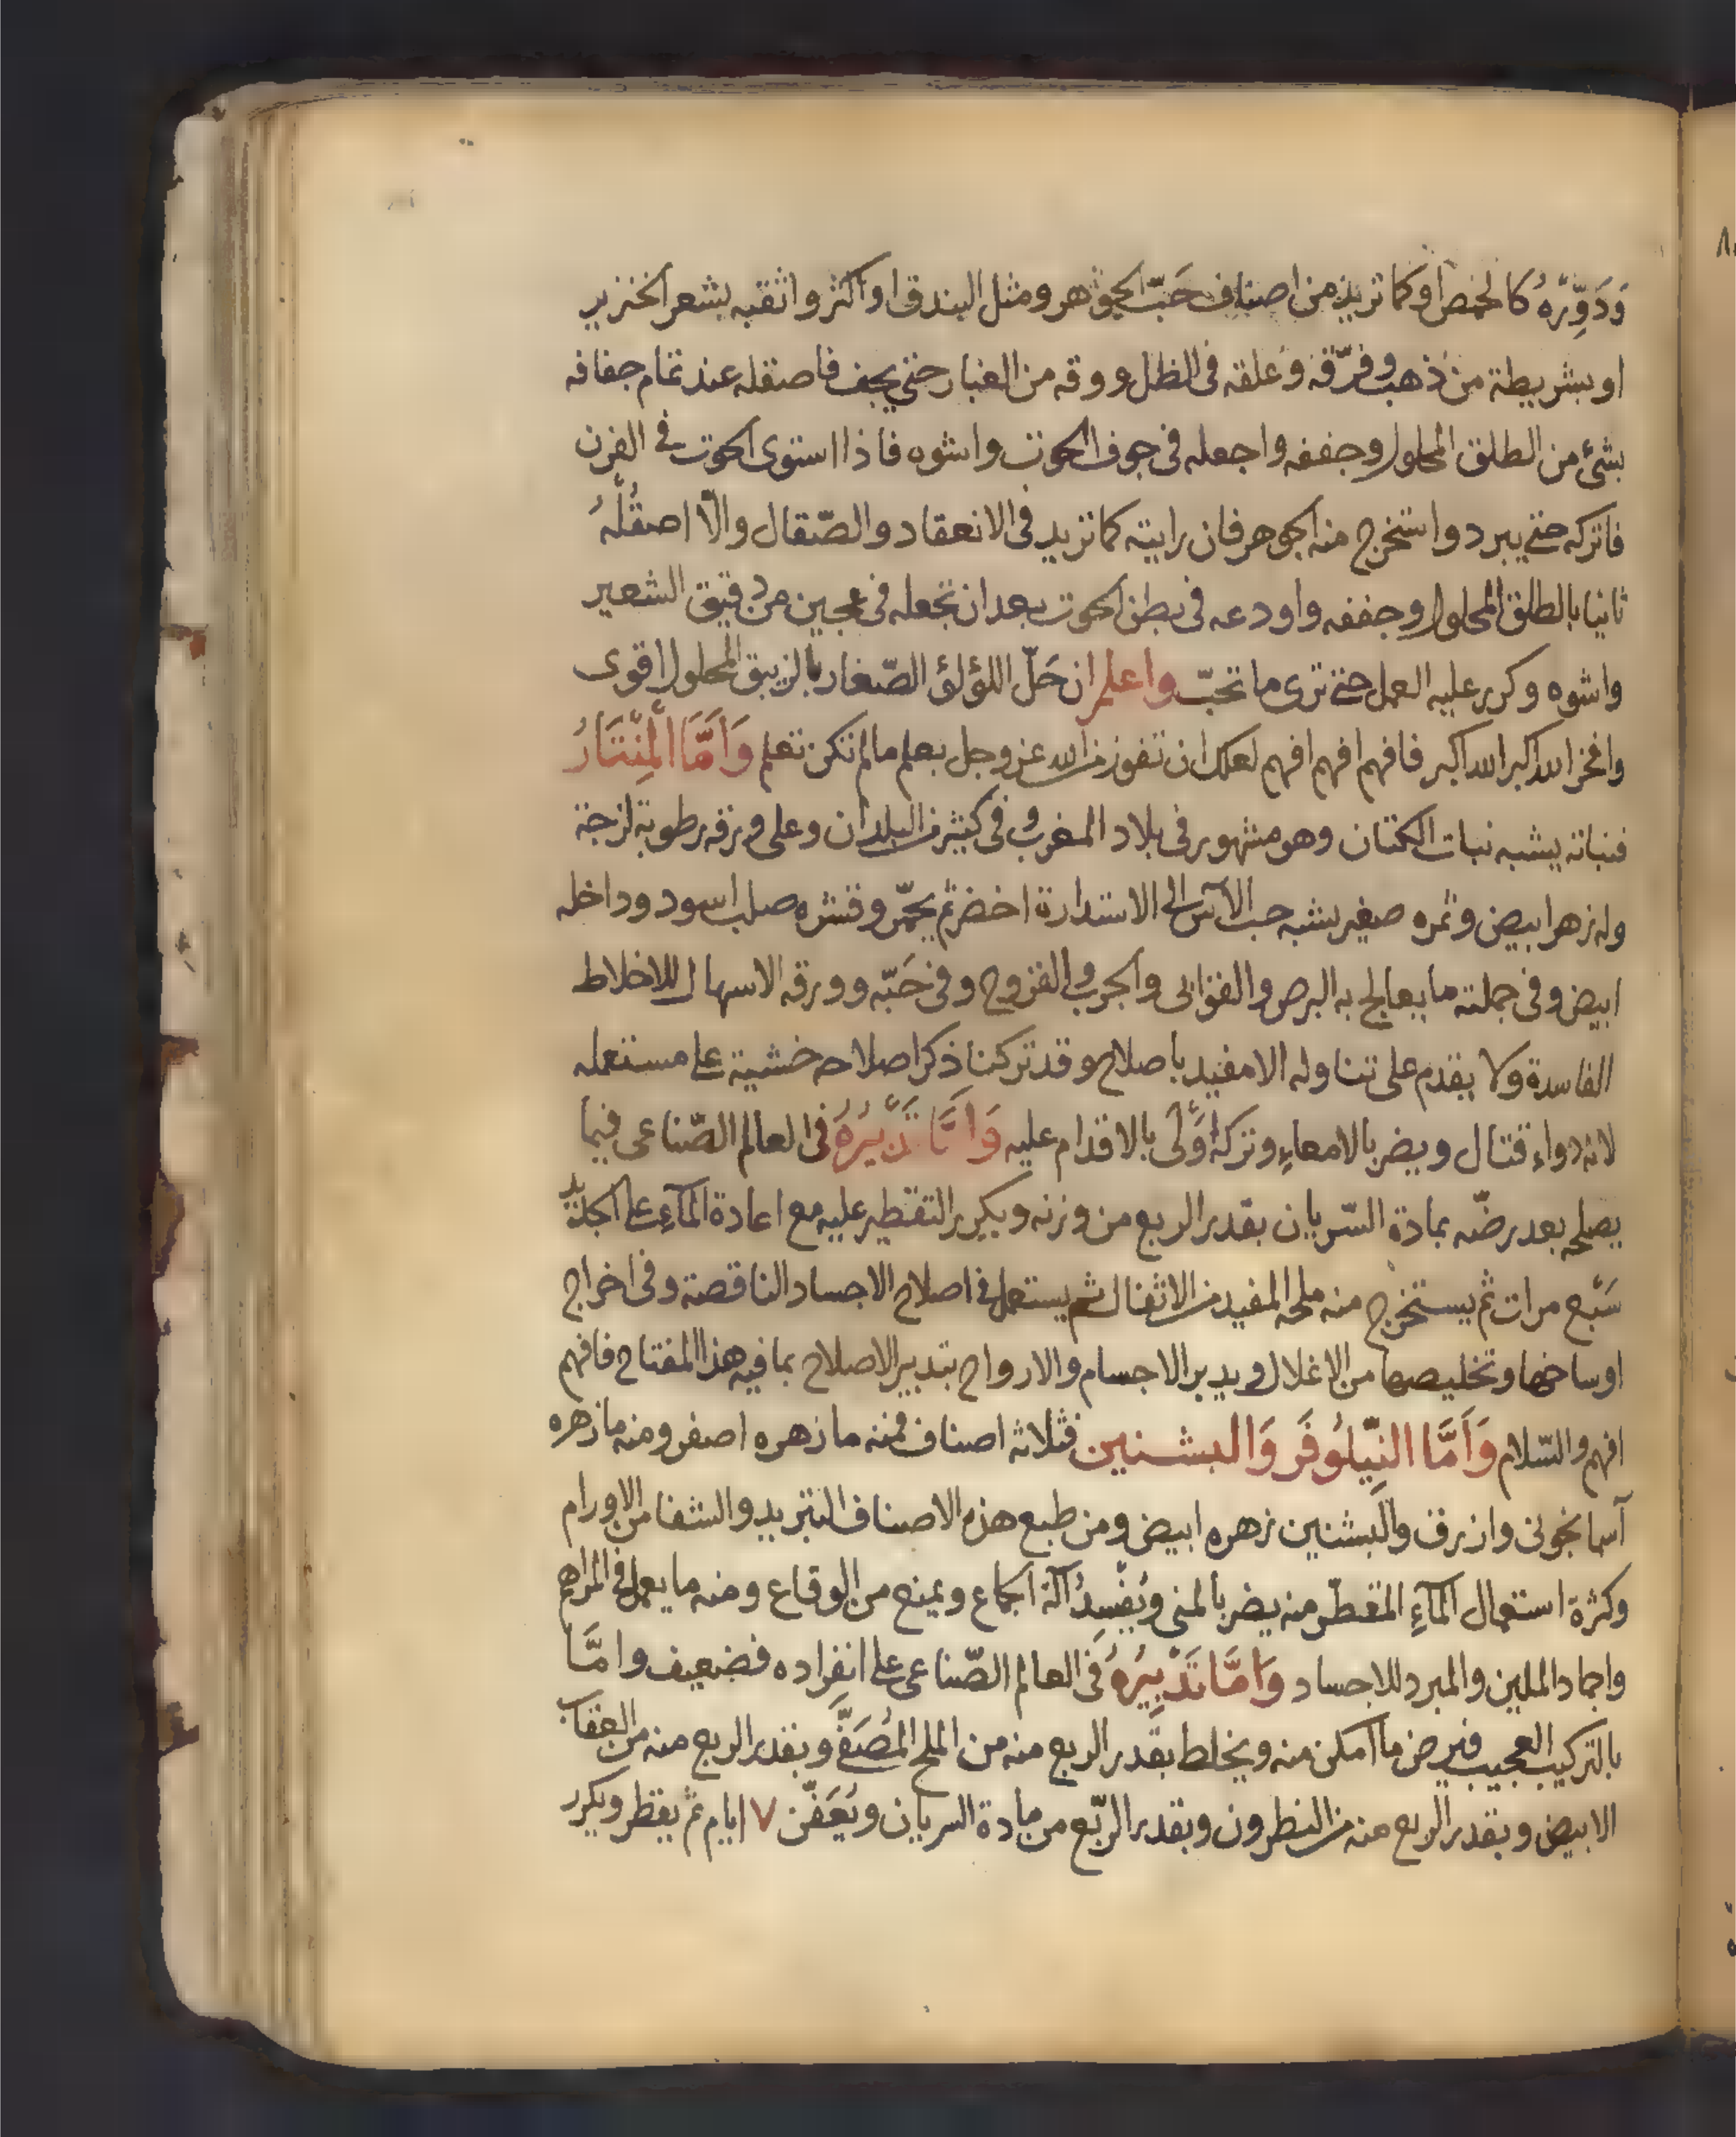 وَدَوِّرْهُ كالحمص او كما تريد من اصناف حَبّ الجوهر ومثل البندق او اكثر واثقبه بشعر الخنزير
او بشريطة من ذهب وفرّقه وعلقه فى الظل ووقه من الغبار حتى يجف فاصقله عند تمام جفافه
بشئ من الطلق المحلول وجففه واجعله فى جوف الحوت واشوه فاذا استوى الحوت فى الفرن
فاتركه حتى يبرد واستخرج منه الجوهر فان رايته كما تريد فى الانعقاد والصّقال والّا اصقُلْهُ
ثانيا بالطلق المحلول وجففه واودعه فى بطن الحوت بعد ان تجعله فى عجين من دقيق الشعير
واشوه وكرر عليه العمل حتى ترى ما تحبّ واعلم ان حَلّ اللؤلؤ الصّغار بالزيبق المحلول اقوى
وافخر الله اكبر الله اكبر فافهم افهم افهم لعلك ان تفوز من الله عز وجل بعلم مالم تكن تعلم وَاَمَّا الْمِنْتَارُ
فنباته يشبه نبات الكتان وهو مشهور فى بلاد المغرب وفى كثير من البلدان وعلى ورقه رطوبة لزجة
وله زهر ابيض وثمره صغير يشبه حب الآس الى الاستدارة اخضر ثم يحمّر وقشره صلب اسود وداخله
ابيض وفى جملته ما يعالج به البرص والقوابى والجرب والقروح وفى حَبّه وورقه الاسهال للاخلاط
الفاسدة ولا يقدم على تناوله الا مفيد باصلاح وقد تركنا ذكر اصلاحه خشية على مستعمله
لانه دواء قتال ويضر بالامعاء وتركه اَوْلى بالاقدام عليه وَاَمَّا تَدْبِيرُهُ فى العالم الصّناعى فيما
يصلحه بعد رضّه بمادة السّريان بقدر الربع من وزنه ويكرر التقطير عليه مع اعادة المآء على الجديد
سَبْع مرات ثم يستخرج منه ملحه المفيد من الاثفال ثم يستعمل فى اصلاح الاجساد الناقصة وفى اخراج
اوساخها وتخليصها من الاغلال ويدبر الاجسام والارواح بتدبير الاصلاح بما فيه هذا المفتاح فافهم
افهم والسّلام وَاَمَّا النِّيلُوفَر وَالبشنين فثلاثه اصناف فمنه ما زهره اصفر ومنه ما زهره
آسمانجونى وازرق والبشنين زهره ابيض ومن طبع هذه الاصناف التبريد والشفا من الاورام
وكثرة استعمال المآء المقطّر منه يضر بالمنى ويُفْسِدُ آلة الجماع ويمنع من الوقاع ومنه ما يعمل فى المراهم
واجماد الملين والمبرد للاجساد وَاَمَّا تَدْبِيرُهُ فى العالم الصّناعى على انفراده فضعيف وامَّا
بالتركيب العجيب فيرض ما امكن منه ويخلط بقدر الربع منه من الملح المُصَفّى وبقدر الربع منه من العقاب
الابيض وبقدر الربع منه من النطرون وبقدر الرّبع من مادة السريان ويُعَفّن ٧ ايام ثم يقطر ويكرر